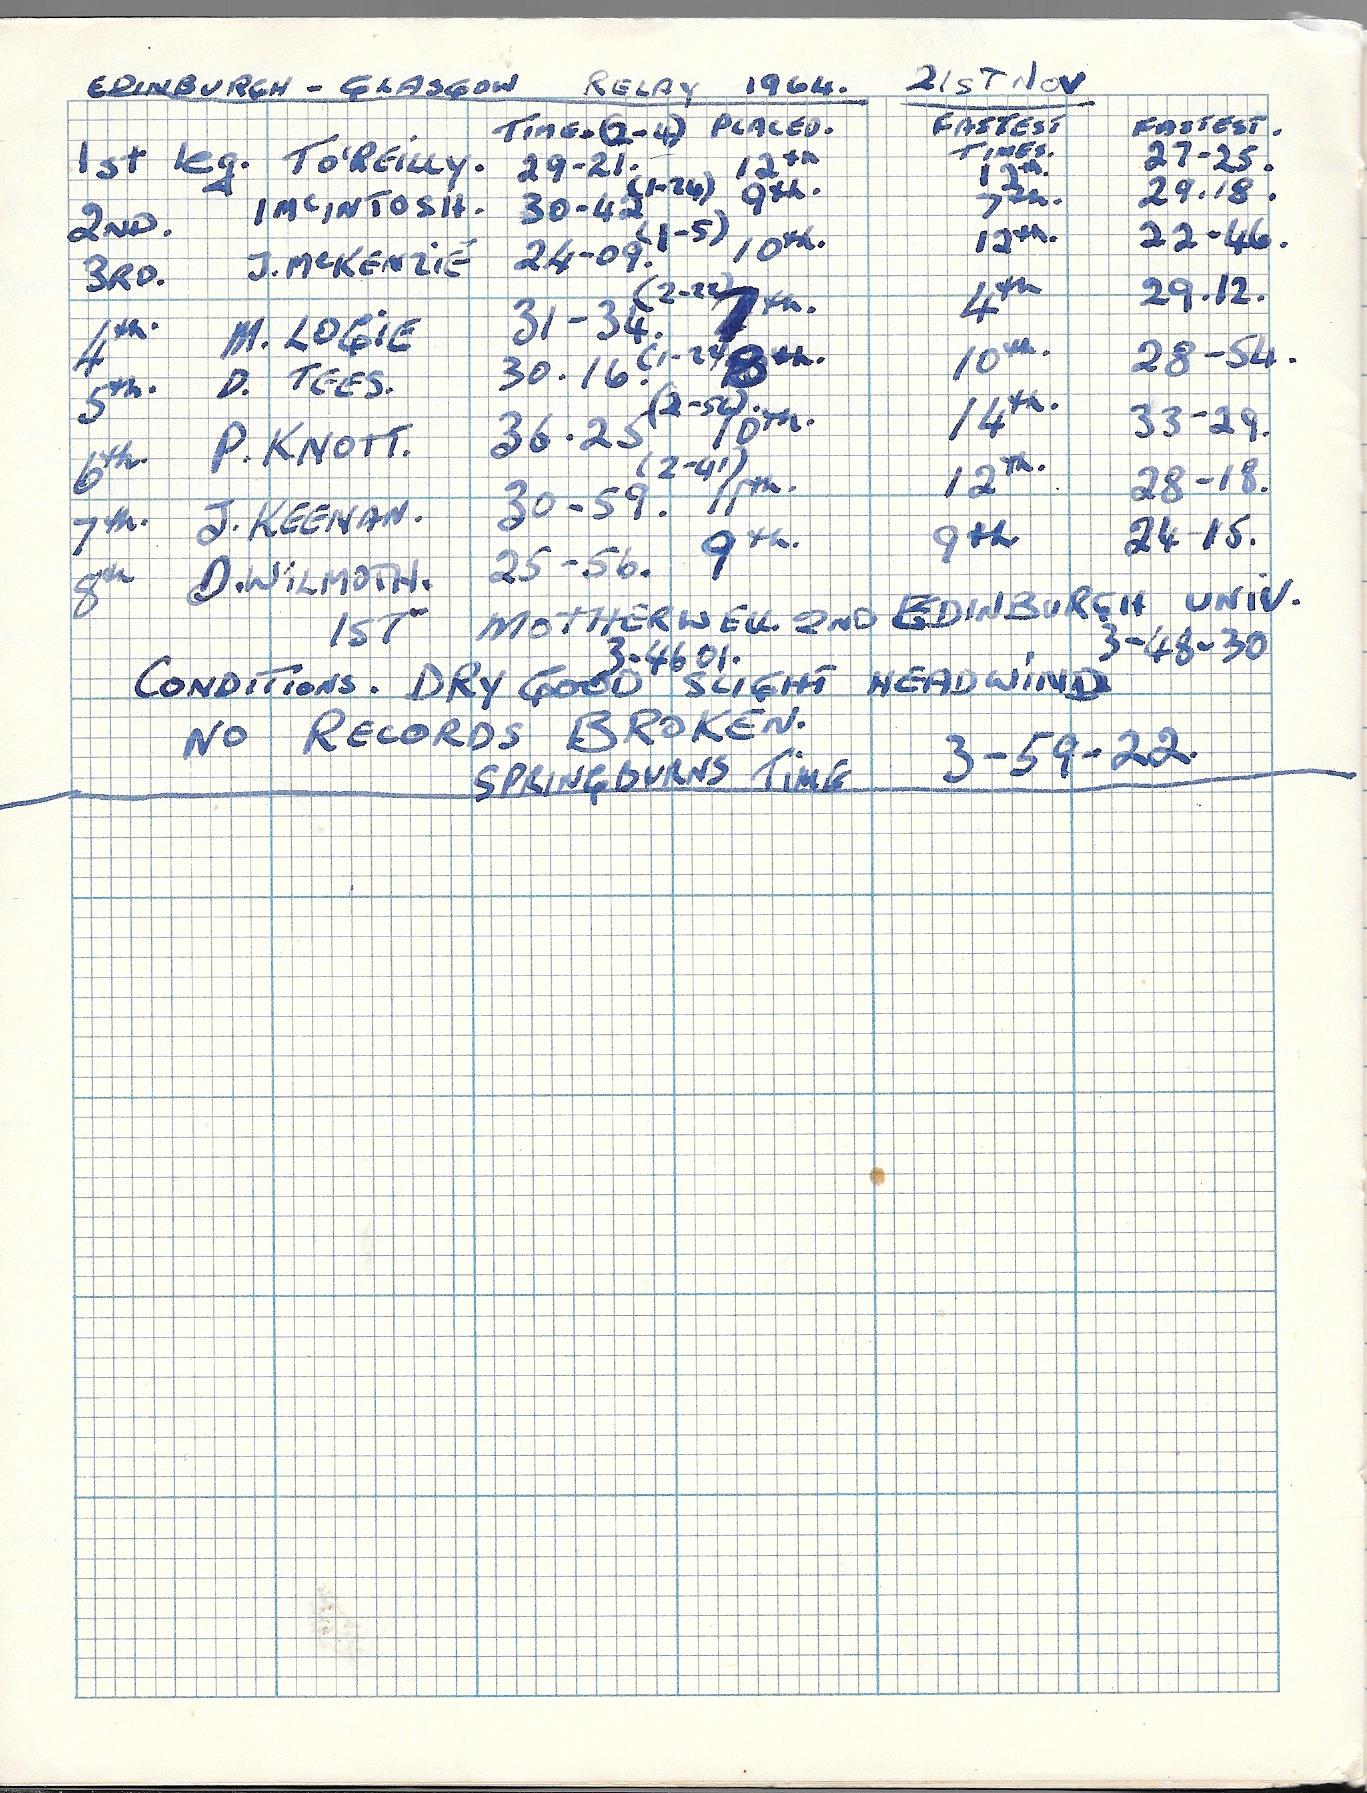 EDINBURGH - GLASGOW RELAY 1964. 21ST NOV
TIME. (2-4) PLACED. FASTEST TIMES. FASTEST.
1st leg. T O'REILLY. 29-21. 12th 12th. 27-25.
2ND. I MCINTOSH. 30-42 (1-24) 9th. 7th. 29.18.
3RD. J. MCKENZIE 24-09. (1-5) 10th. 12th. 22-46.
4th. M. LOGIE 31-34. 7th. 4th 29.12.
5th. D. TEES. 30.16. 8th. 10th. 28-54.
6th. P. KNOTT. 36.25 10th. 14th. 33-29.
7th. J. KEENAN. 30-59. (2-41) 11th. 12th. 28-18.
8th D. WILMOTH. 25-56. 9th. 9th 24-15.
1ST MOTHERWELL 2ND EDINBURGH UNIV.
3-46 01. 3-48-30
CONDITIONS. DRY GOOD SLIGHT HEADWIND
NO RECORDS BROKEN.
SPRINGBURNS TIME 3-59-22.